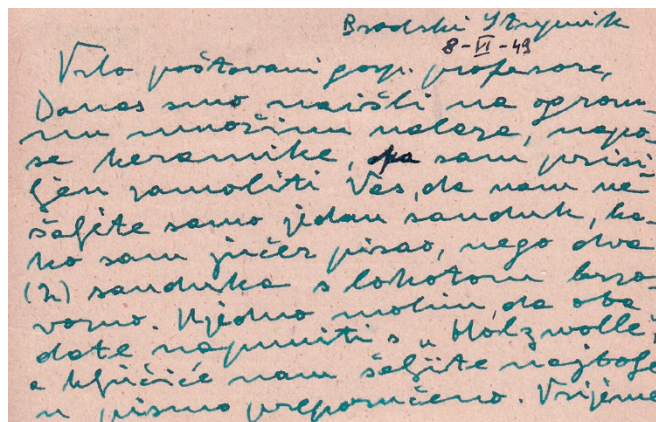 Brodski Stupnik
8-VI-49
Vrlo poštovani gosp. profesore,
Danas smo naišli na ogrom-
nu množinu nalaza, napo-
se keramike, pa sam prisi-
ljen zamoliti Vas, da nam ne
šaljete samo jedan sanduk, ka-
ko sam jučer pisao, nego dva
(2) sanduka s lokotom brzo-
vozno. Ujedno molim, da oba
date napuniti s „Holzwolle",
a ključiće nam šaljite najbolje
u pismu preporučeno. Vrijeme